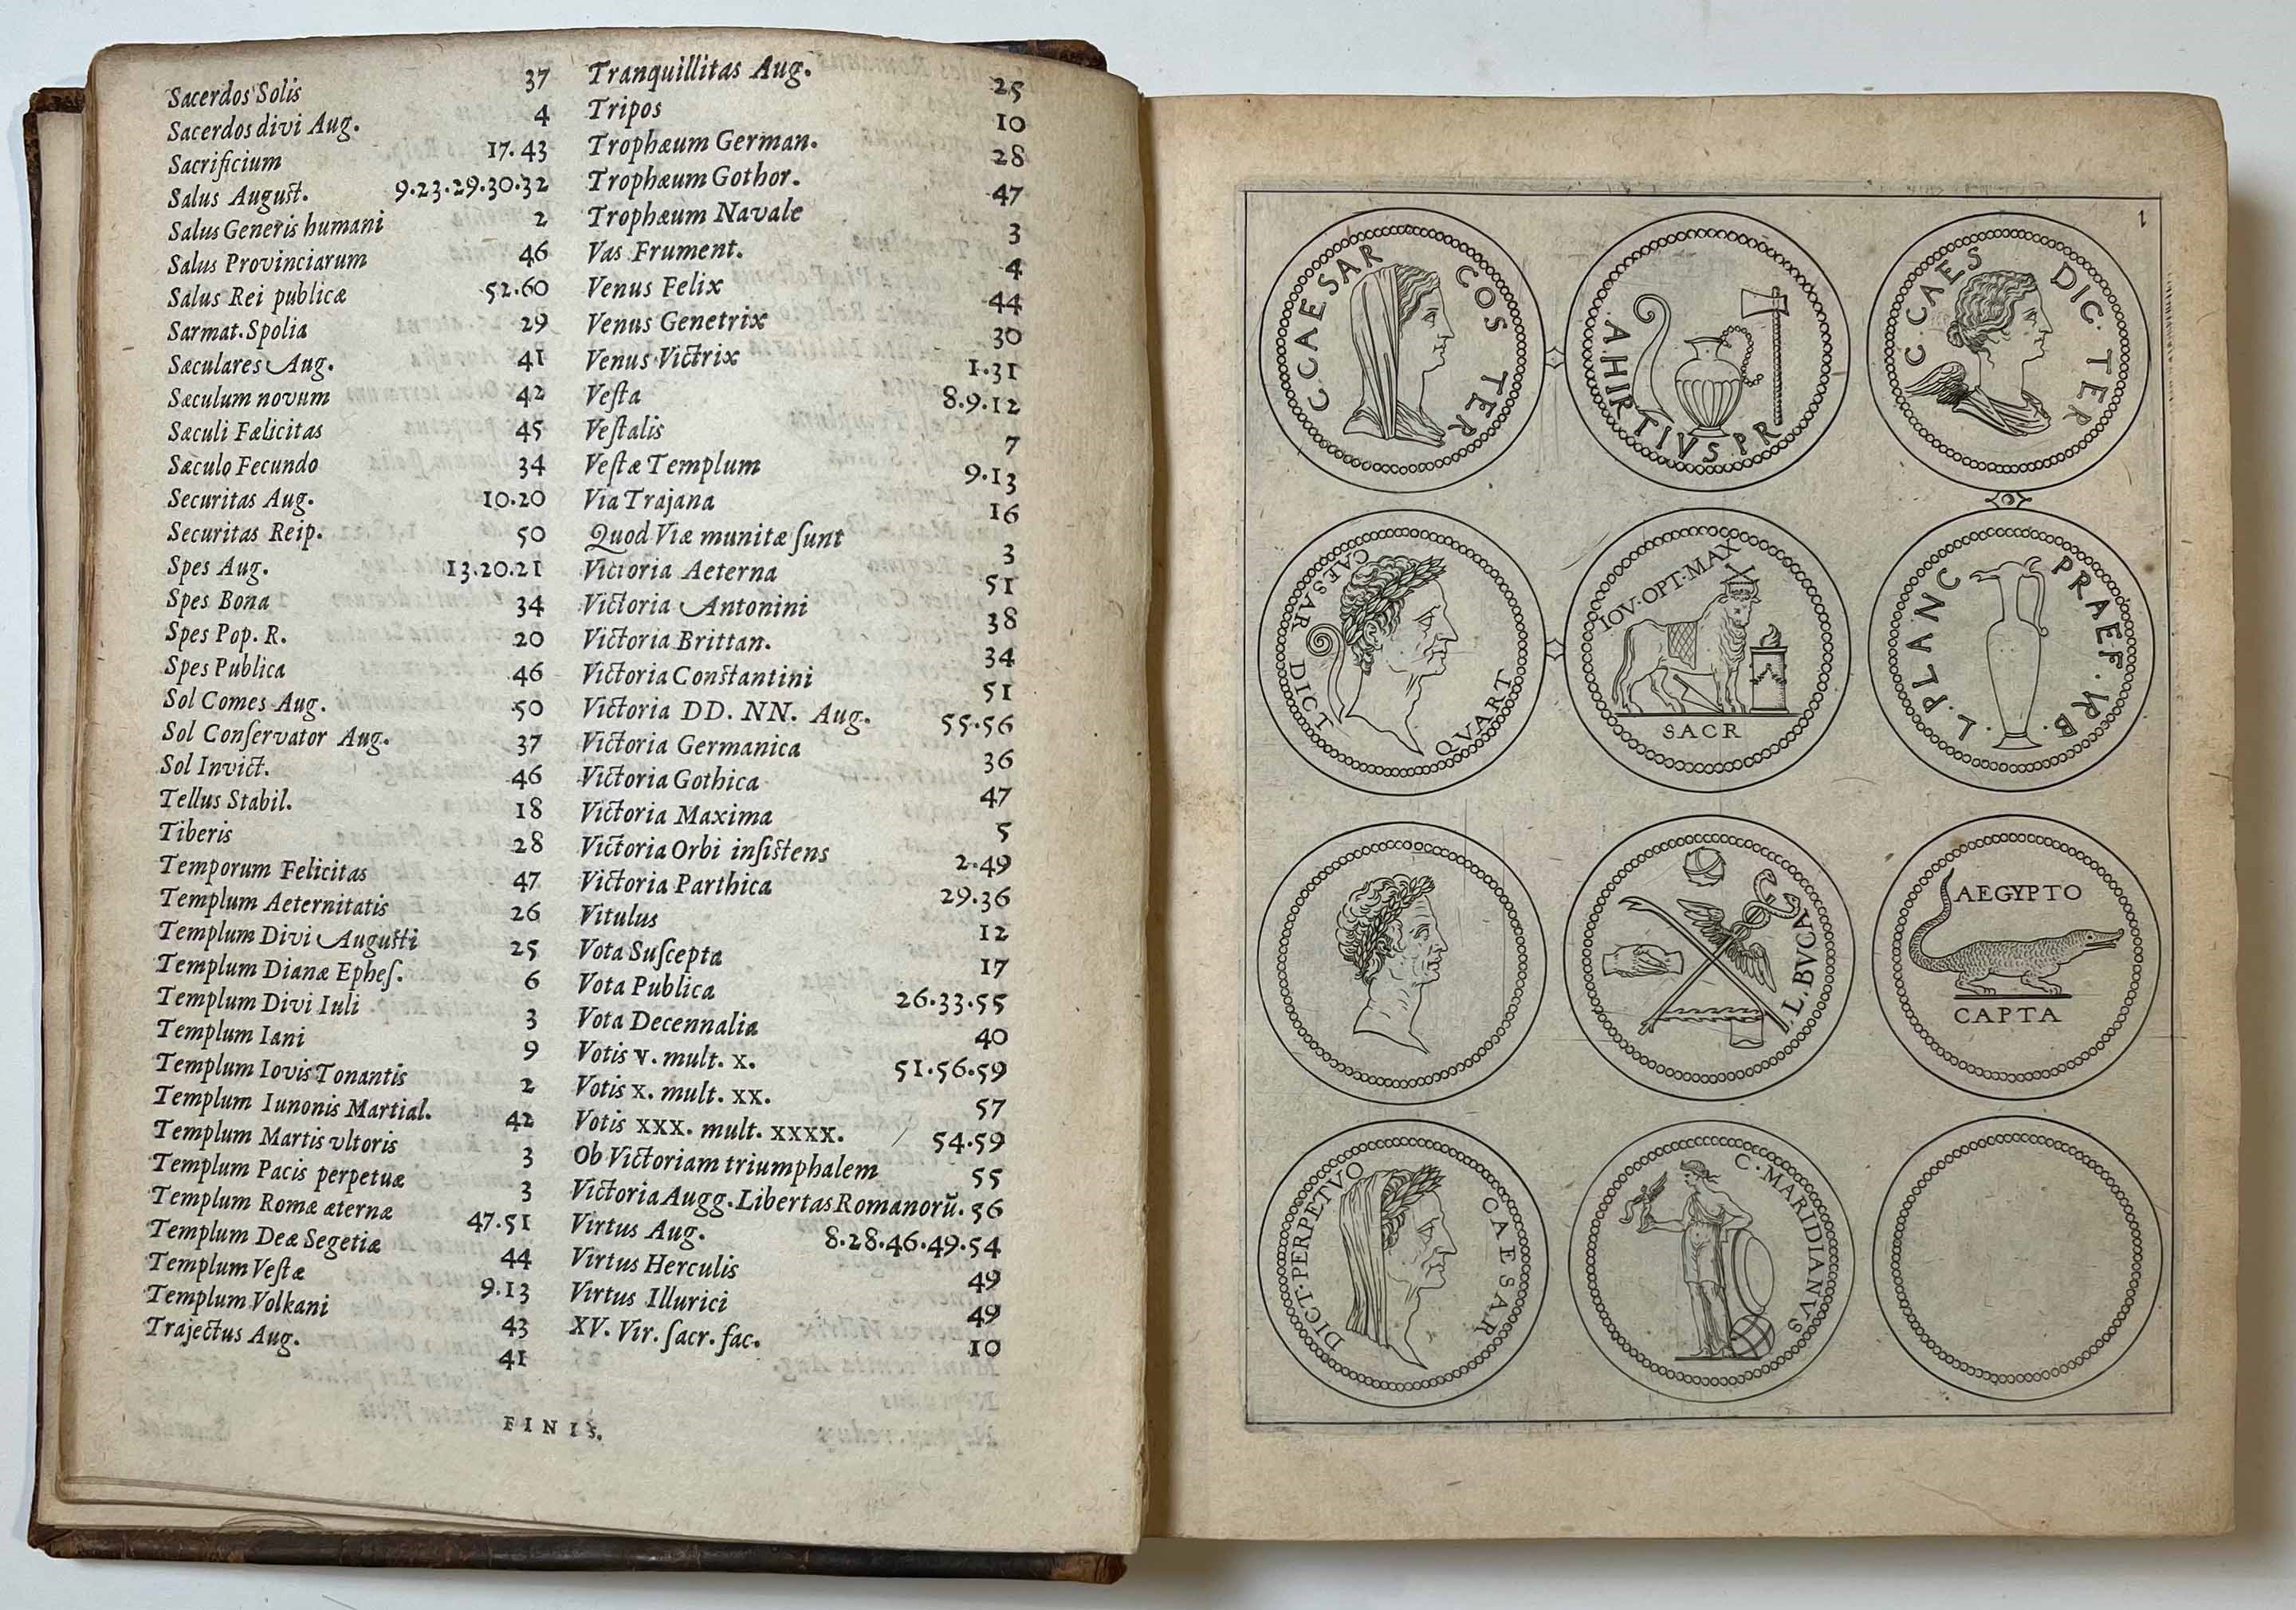 Sacerdos Solis 37
Sacerdos divi Aug. 4
Sacrificium 17.43
Salus August. 9.23.29.30.32
Salus Generis humani 2
Salus Provinciarum 46
Salus Rei publicæ 52.60
Sarmat. Spolia 29
Sæculares Aug. 41
Sæculum novum 42
Sæculi Fælicitas 45
Sæculo Fecundo 34
Securitas Aug. 10.20
Securitas Reip. 50
Spes Aug. 13.20.21
Spes Bona 34
Spes Pop. R. 20
Spes Publica 46
Sol Comes Aug. 50
Sol Conſervator Aug. 37
Sol Invict. 46
Tellus Stabil. 18
Tiberis 28
Temporum Felicitas 47
Templum Aeternitatis 26
Templum Divi Auguſti 25
Templum Dianæ Epheſ. 6
Templum Divi Iuli 3
Templum Iani 9
Templum Iovis Tonantis 2
Templum Iunonis Martial. 42
Templum Martis vltoris 3
Templum Pacis perpetuæ 3
Templum Romæ æternæ 47.51
Templum Deæ Segetiæ 44
Templum Veſtæ 9.13
Templum Volkani 43
Trajectus Aug. 41
Tranquillitas Aug. 25
Tripos 10
Trophæum German. 28
Trophæum Gothor. 47
Trophæum Navale 3
Vas Frument. 4
Venus Felix 44
Venus Genetrix 30
Venus Victrix 1.31
Veſta 8.9.12
Veſtalis 7
Veſtæ Templum 9.13
Via Trajana 16
Quod Viæ munitæ ſunt 3
Victoria Aeterna 51
Victoria Antonini 38
Victoria Brittan. 34
Victoria Conſtantini 51
Victoria DD. NN. Aug. 55.56
Victoria Germanica 36
Victoria Gothica 47
Victoria Maxima 5
Victoria Orbi inſiſtens 2.49
Victoria Parthica 29.36
Vitulus 12
Vota Suſcepta 17
Vota Publica 26.33.55
Vota Decennalia 40
Votis v. mult. x. 51.56.59
Votis x. mult. xx. 57
Votis xxx. mult. xxxx. 54.59
Ob Victoriam triumphalem 55
Victoria Augg. Libertas Romanorū. 56
Virtus Aug. 8.28.46.49.54
Virtus Herculis 49
Virtus Illurici 49
XV. Vir. ſacr. fac. 10
FINIS.
1
C. CAESAR COS TER
A. HIRTIVS. PR
C. CAES DIC. TER
CAESAR DICT QVART
IOV. OPT. MAX
SACR
L. PLANC PRAEF. VRB.
L. BVCA
AEGYPTO
CAPTA
DICT. PERPETVO CAESAR
C. MARIDIANVS